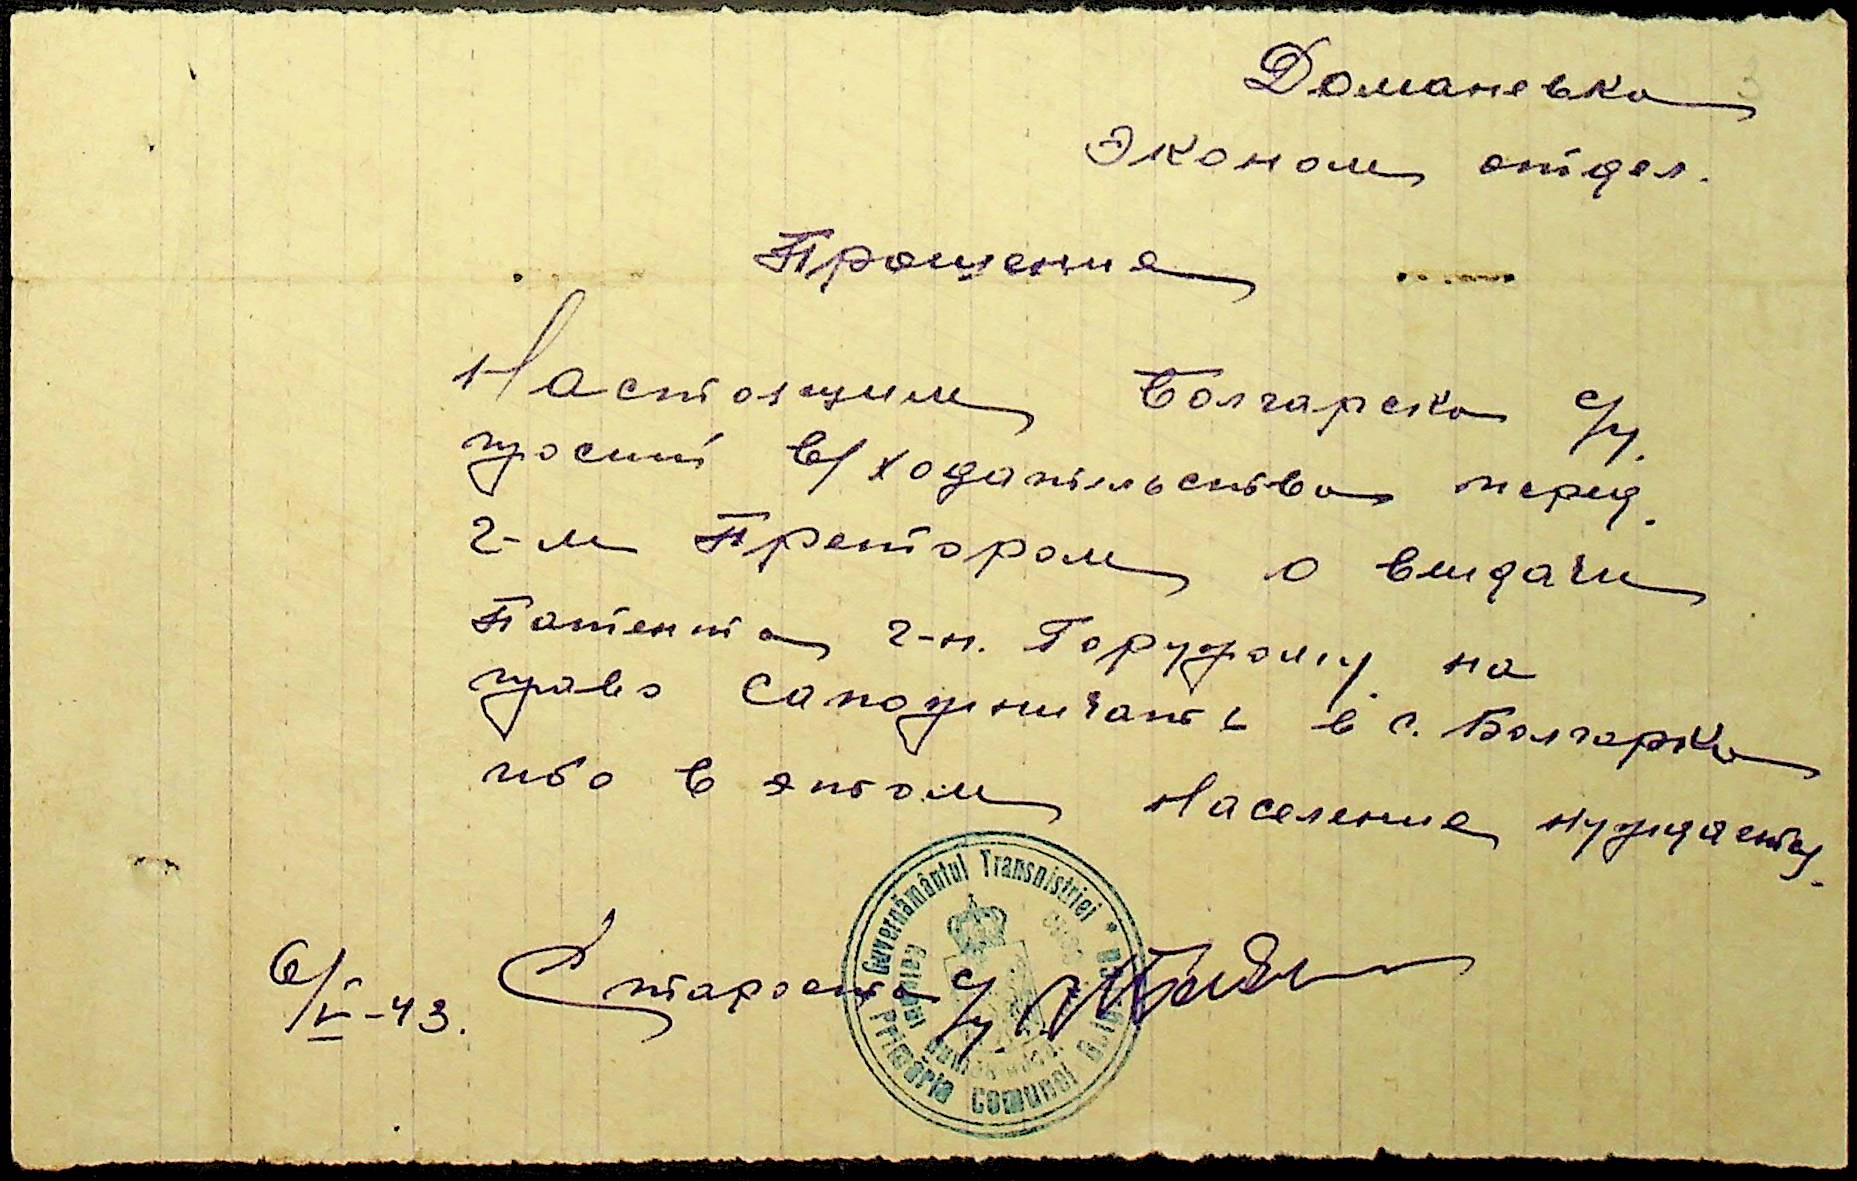 Доманевка
Эконом отдел.
Прошение
Настоящим Болгарска с/у.
просит в/ходательство перед
г-м Претором о выдачи
Патента г-н. на
право Сапожничать в с. Болгарка
ибо в этом население нуждается.
6/V-43. Староста с/у.
Guvernământul Transnistriei *
Primăria Comunei